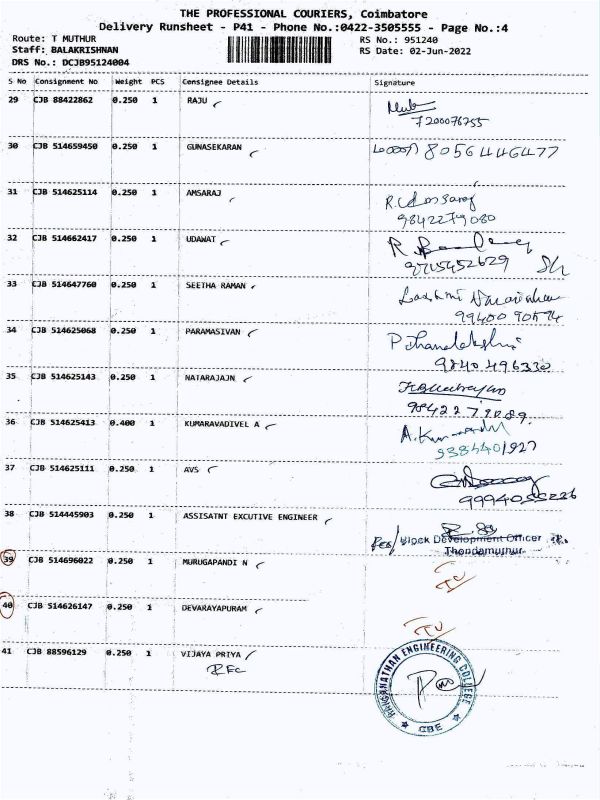 THE PROFESSIONAL COURIERS, Coimbatore
Delivery Runsheet - P41 - Phone No.:0422-3505555 - Page No.:4
Route: T MUTHUR
RS No.: 951240
Staff: BALAKRISHNAN
RS Date: 02-Jun-2022
DRS No.: DCJB95124004
S No Consignment No Weight PCS Consignee Details Signature
29 CJB 88422862 0.250 1 RAJU
7200076755
30 CJB 514659450 0.250 1 GUNASEKARAN 8056446477
31 CJB 514625114 0.250 1 AMSARAJ
9842279080
32 CJB 514662417 0.250 1 UDAWAT
9715452629
33 CJB 514647760 0.250 1 SEETHA RAMAN Lakshmi
99400 90574
34 CJB 514625068 0.250 1 PARAMASIVAN P Dhanalakshmi
9840496330
35 CJB 514625143 0.250 1 NATARAJAJN
36 CJB 514625413 0.400 1 KUMARAVADIVEL A
9384401927
37 CJB 514625111 0.250 1 AVS
38 CJB 514445903 0.250 1 ASSISATNT EXCUTIVE ENGINEER
Block Development Officer
Thondamuthur
39 CJB 514696022 0.250 1 MURUGAPANDI N
40 CJB 514626147 0.250 1 DEVARAYAPURAM
41 CJB 88596129 0.250 1 VIJAYA PRIYA
REC
RANGANATHAN ENGINEERING COLLEGE
CBE